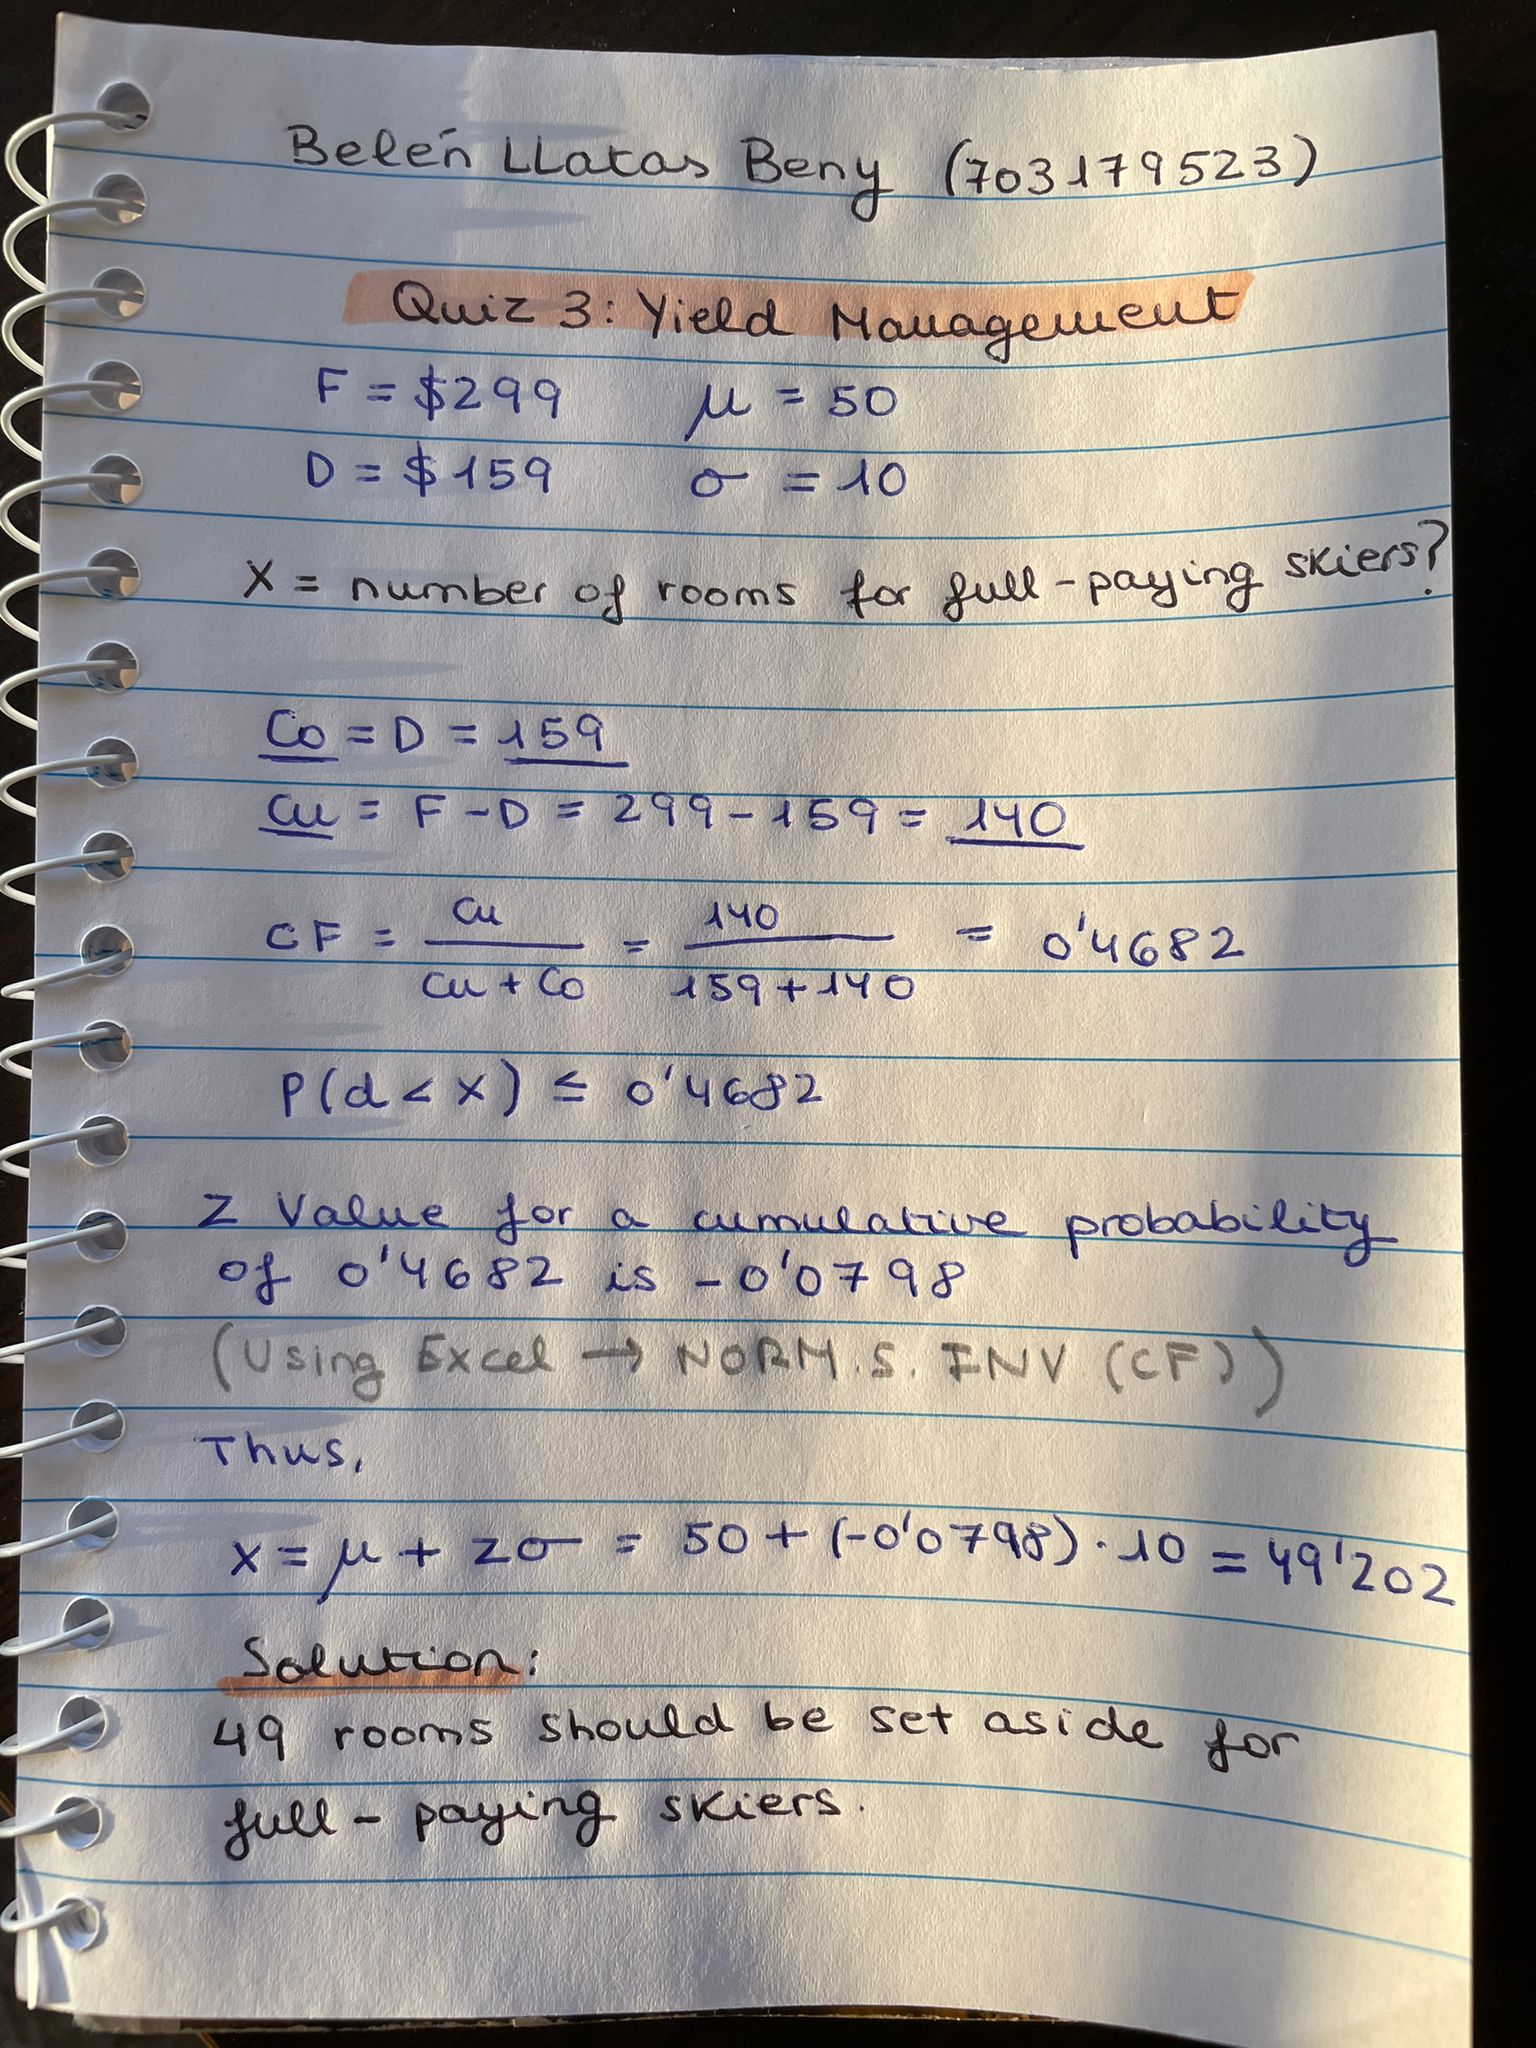 Belén LLatas Beny (703179523)
Quiz 3: Yield Management
F = $299 μ = 50
D = $159 σ = 10
X = number of rooms for full-paying skiers?
Co = D = 159
Cu = F - D = 299 - 159 = 140
CF = Cu / Cu + Co = 140 / 159 + 140 = 0'4682
P(d < x) ≤ 0'4682
Z Value for a cumulative probability
of 0'4682 is -0'0798
(Using Excel → NORM.S.INV (CF))
Thus,
x = μ + zσ = 50 + (-0'0798) · 10 = 49'202
Solution:
49 rooms should be set aside for
full-paying skiers.